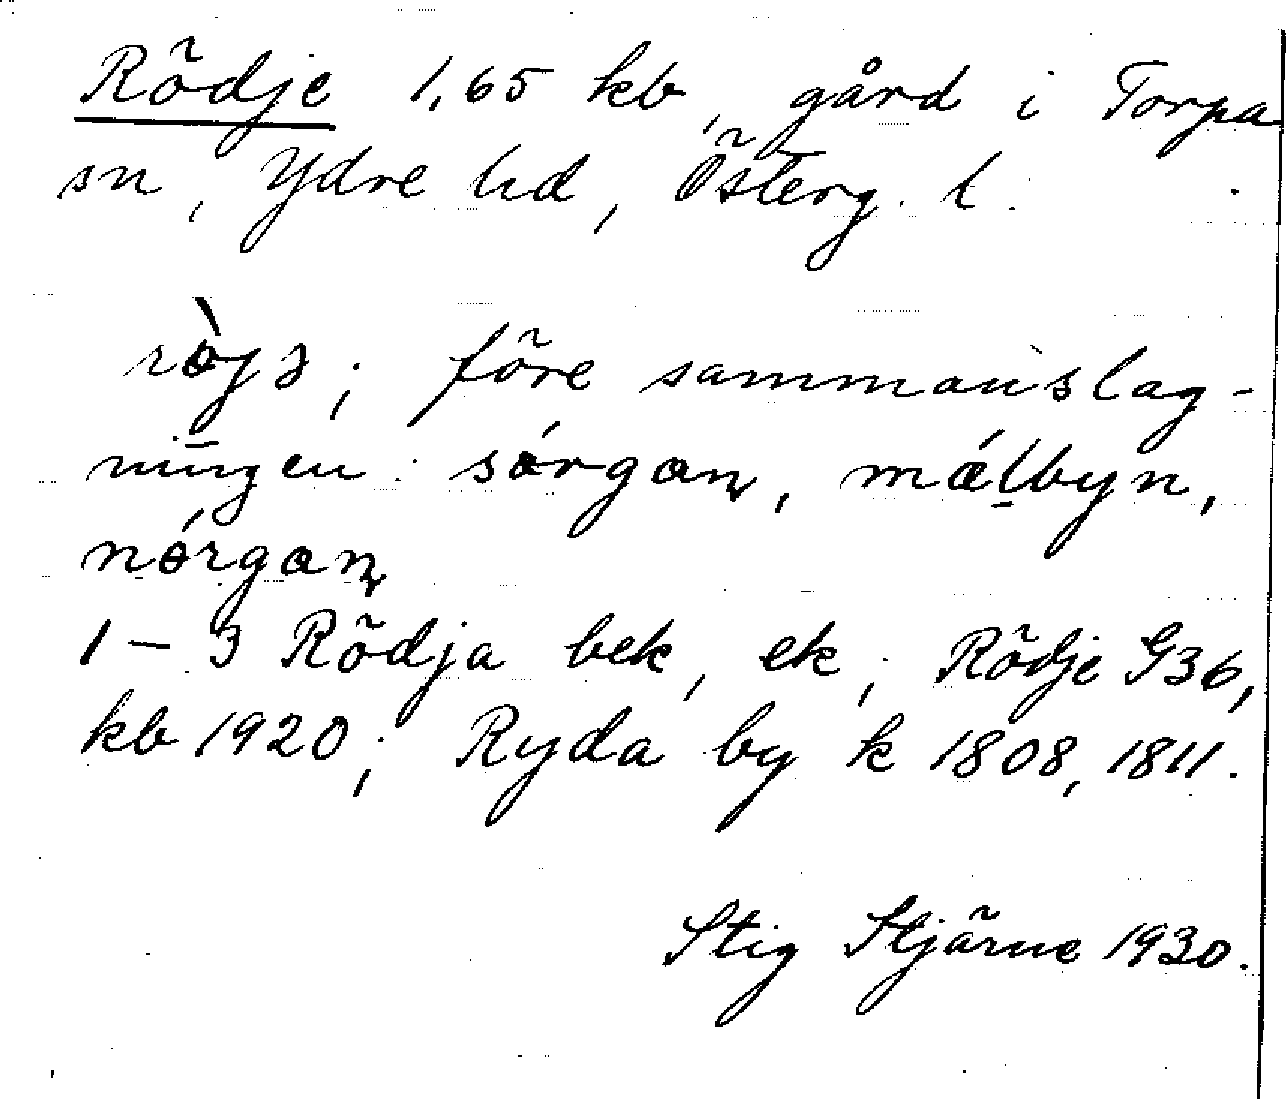 Rödje 1,65 kb, gård i Torpa
sn, Ydre hd, Österg. l.
rò̀jə; före sammanslag-
ningen sórgan, málbyn,
nórgan
1–3 Rödja bek, ek; Rödje G36,
kb 1920; Ryda by k 1808, 1811.
Stig Stjärne 1930.